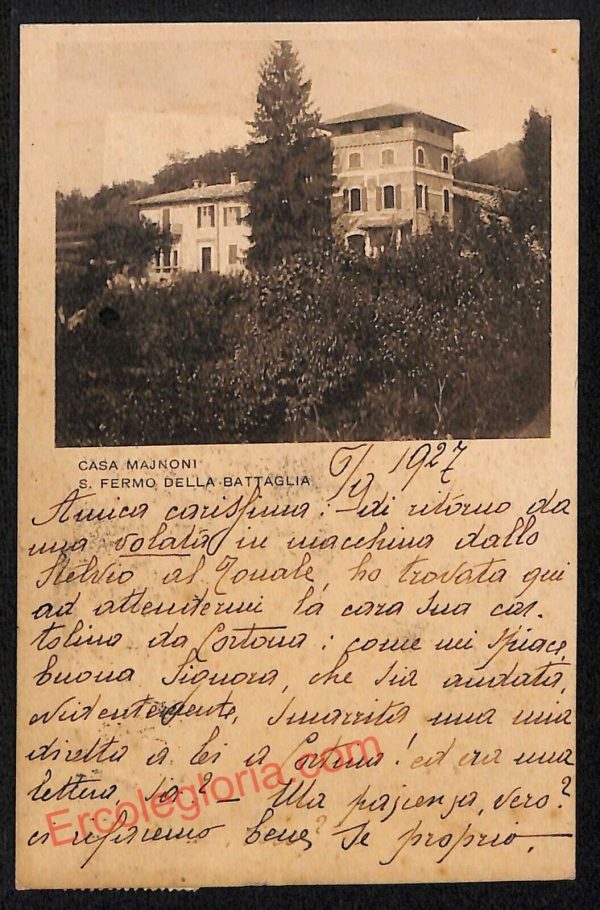 CASA MAJNONI
S. FERMO DELLA BATTAGLIA
6/9 1927
Amica carissima: - di ritorno da
una volata in macchina dallo
Stelvio al Tonale, ho trovata qui
ad attendermi la cara sua car-
tolina da Cortona: come mi spiace,
buona Signora, che sia andata,
evidentemente, smarrita una mia
diretta a lei a Cortona! ed era una
lettera, sa? - Ma pazienza, vero?
ci rifaremo bene? Se proprio.
Ercolegioria.com